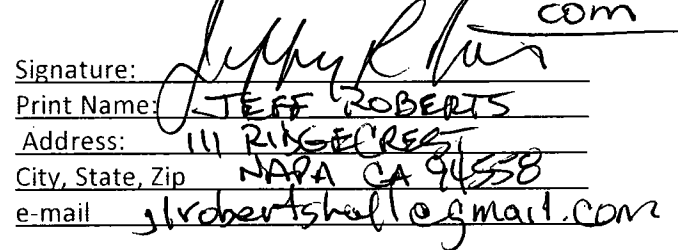 com
Signature:
Print Name: JEFF ROBERTS
Address: 111 RIDGECREST
City, State, Zip NAPA CA 94558
e-mail jlrobertshall@gmail.com